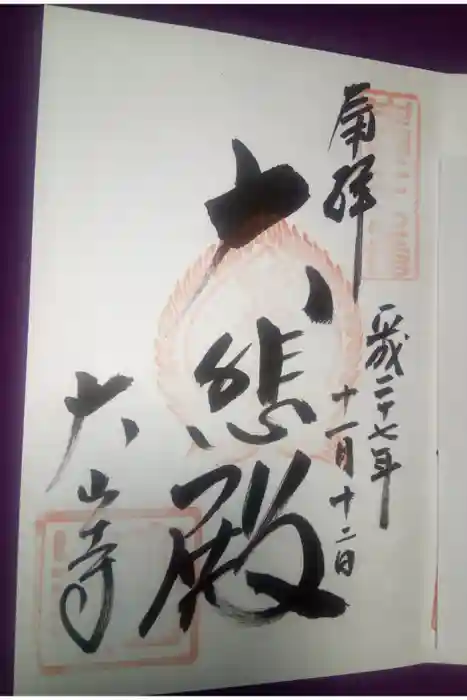 奉拝
平成二十七年
十一月十二日
大悲殿
大山寺